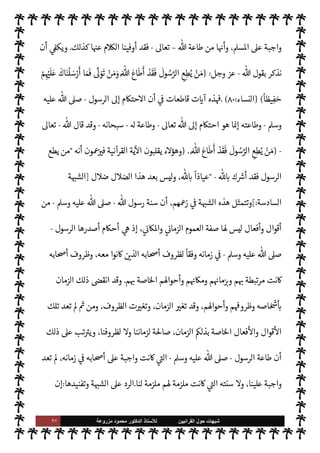 واجبة على المسلم، وأنها من طاعة الله – تعالى - فقد أوفينا الكلام عنها كذلك. ويكفي أن
نذكر بقول الله - عز وجل: (مَنْ يُطِعِ الرَّسُولَ فَقَدْ أَطَاعَ اللَّهَ وَمَنْ تَوَلَّى فَمَا أَرْسَلْنَاكَ عَلَيْهِمْ
حَفِيظاً) (النساء:٨٠). فهذه آيات قاطعات في أن الاحتكام إلى الرسول - صلى الله عليه
وسلم - وطاعته إنما هو احتكام إلى الله تعالى وطاعة له - سبحانه - وقد قال الله - تعالى
- (مَنْ يُطِعِ الرَّسُولَ فَقَدْ أَطَاعَ اللَّهَ). (وهؤلاء يقلبون الآية القرآنية فيزعمون أنه "من يطع
الرسول فقد أشرك بالله" -عياذاً بالله، وليس بعد هذا الضلال ضلال [الشبهة
السادسة:]وتتمثل هذه الشبهة في زعمهم، أن سنة رسول الله - صلى الله عليه وسلم - من
أقوال وأفعال ليس لها صفة العموم الزماني والمكاني، إذ هي أحكام أصدرها الرسول -
صلى الله عليه وسلم - في زمانه وفقاً لظروف أصحابه الذين كانوا معه، وظروف أصحابه
كانت مرتبطة بهم وبزمانهم ومكانهم وأحوالهم الخاصة بهم. وقد انقضى ذلك الزمان
بأشخاصه وظروفهم وأحوالهم، وقد تغير الزمان، وتغيرت الظروف، ومن ثم لم تعد تلك
الأقوال والأفعال الخاصة بذلكم الزمان، صالحة لزماننا ولا لظروفنا، ويترتب على ذلك
أن طاعة الرسول - صلى الله عليه وسلم - التي كانت واجبة على أصحابه في زمانه، لم تعد
واجبة علينا، ولا سنته التي كانت ملزمة لهم ملزمة لنا.الرد على الشبهة وتفنيدها:إن
شبهات حول القرآنيين للأستاذ الدكتور محمود مزروعة ٩٢